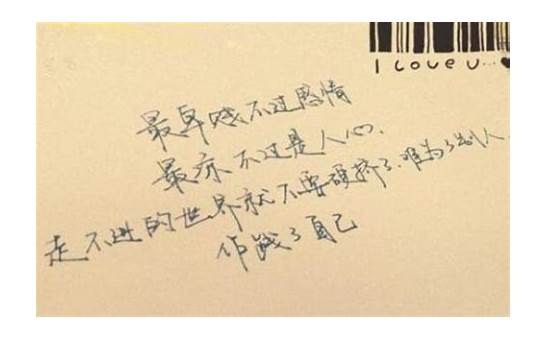 I LOVE U...
最卑贱不过感情
最凉不过是人心.
走不进的世界就不要硬挤了.难为了别人.
作践了自己